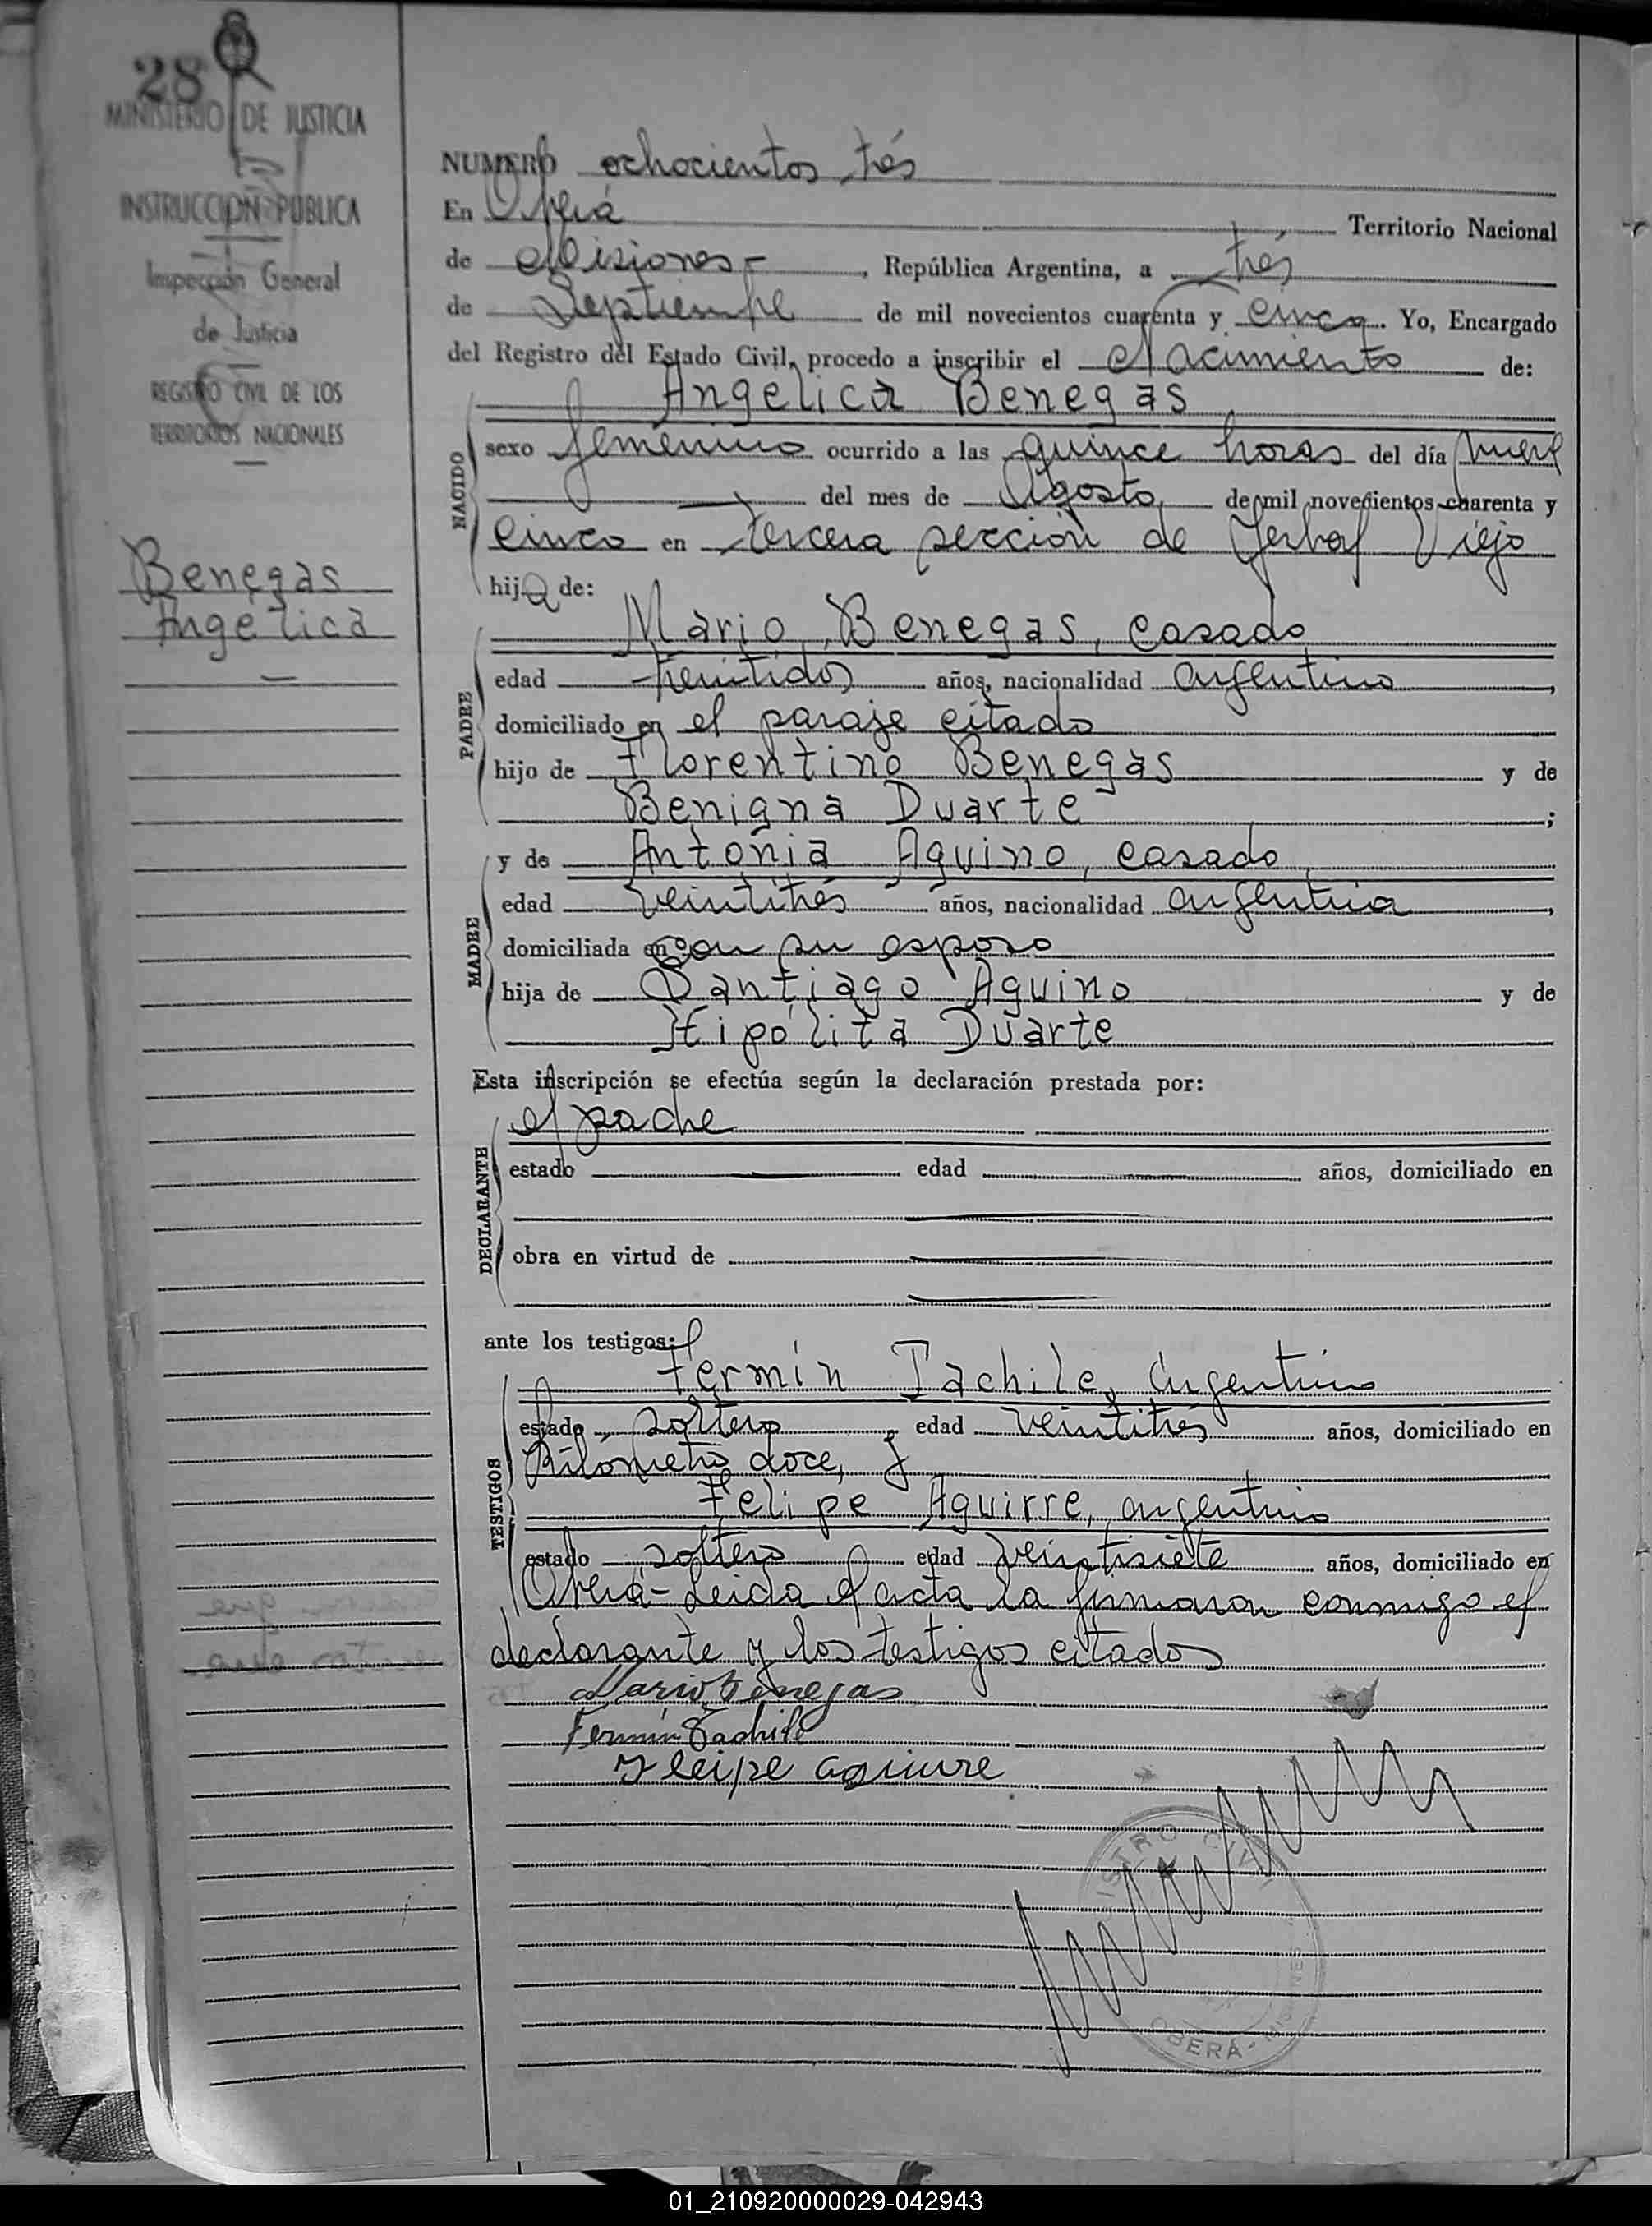 28
MINISTERIO DE JUSTICIA
INSTRUCCION PUBLICA
Inspección General
de Justicia
REGISTRO CIVIL DE LOS
TERRITORIOS NACIONALES
Benegas
Angélica
NUMERO ochocientos trés
En Oberá Territorio Nacional
de Misiones-, República Argentina, a trés
de Septiembre de mil novecientos cuarenta y cinco. Yo, Encargado
del Registro del Estado Civil, procedo a inscribir el Nacimiento de:
Angélica Benegas
NACIDO
sexo femenino ocurrido a las quince horas del día nueve
del mes de Agosto de mil novecientos cuarenta y
cinco en tercera sección de Yerbal Viejo
hija de:
PADRE
Mario Benegas, casado
edad treintidos años, nacionalidad argentino,
domiciliado en el paraje citado
hijo de Florentino Benegas y de
Benigna Duarte;
MADRE
y de Antonia Aquino, casado
edad veintitrés años, nacionalidad argentina,
domiciliada en con su esposo
hija de Santiago Aquino y de
Hipólita Duarte
Esta inscripción se efectúa según la declaración prestada por:
DECLARANTE
el padre
estado edad años, domiciliado en
obra en virtud de
ante los testigos:
TESTIGOS
Fermín Tachile, argentino
estado soltero edad veintitrés años, domiciliado en
Kilómetro doce, y
Felipe Aguirre, argentino
estado soltero edad veintisiete años, domiciliado en
Oberá- Leida el acta la firmaron conmigo el
declarante y los testigos citados
Mario Benegas
Fermin Tachile
Fleipe aguirre
REGISTRO CIVIL
OBERÁ- MISIONES
01_210920000029-042943